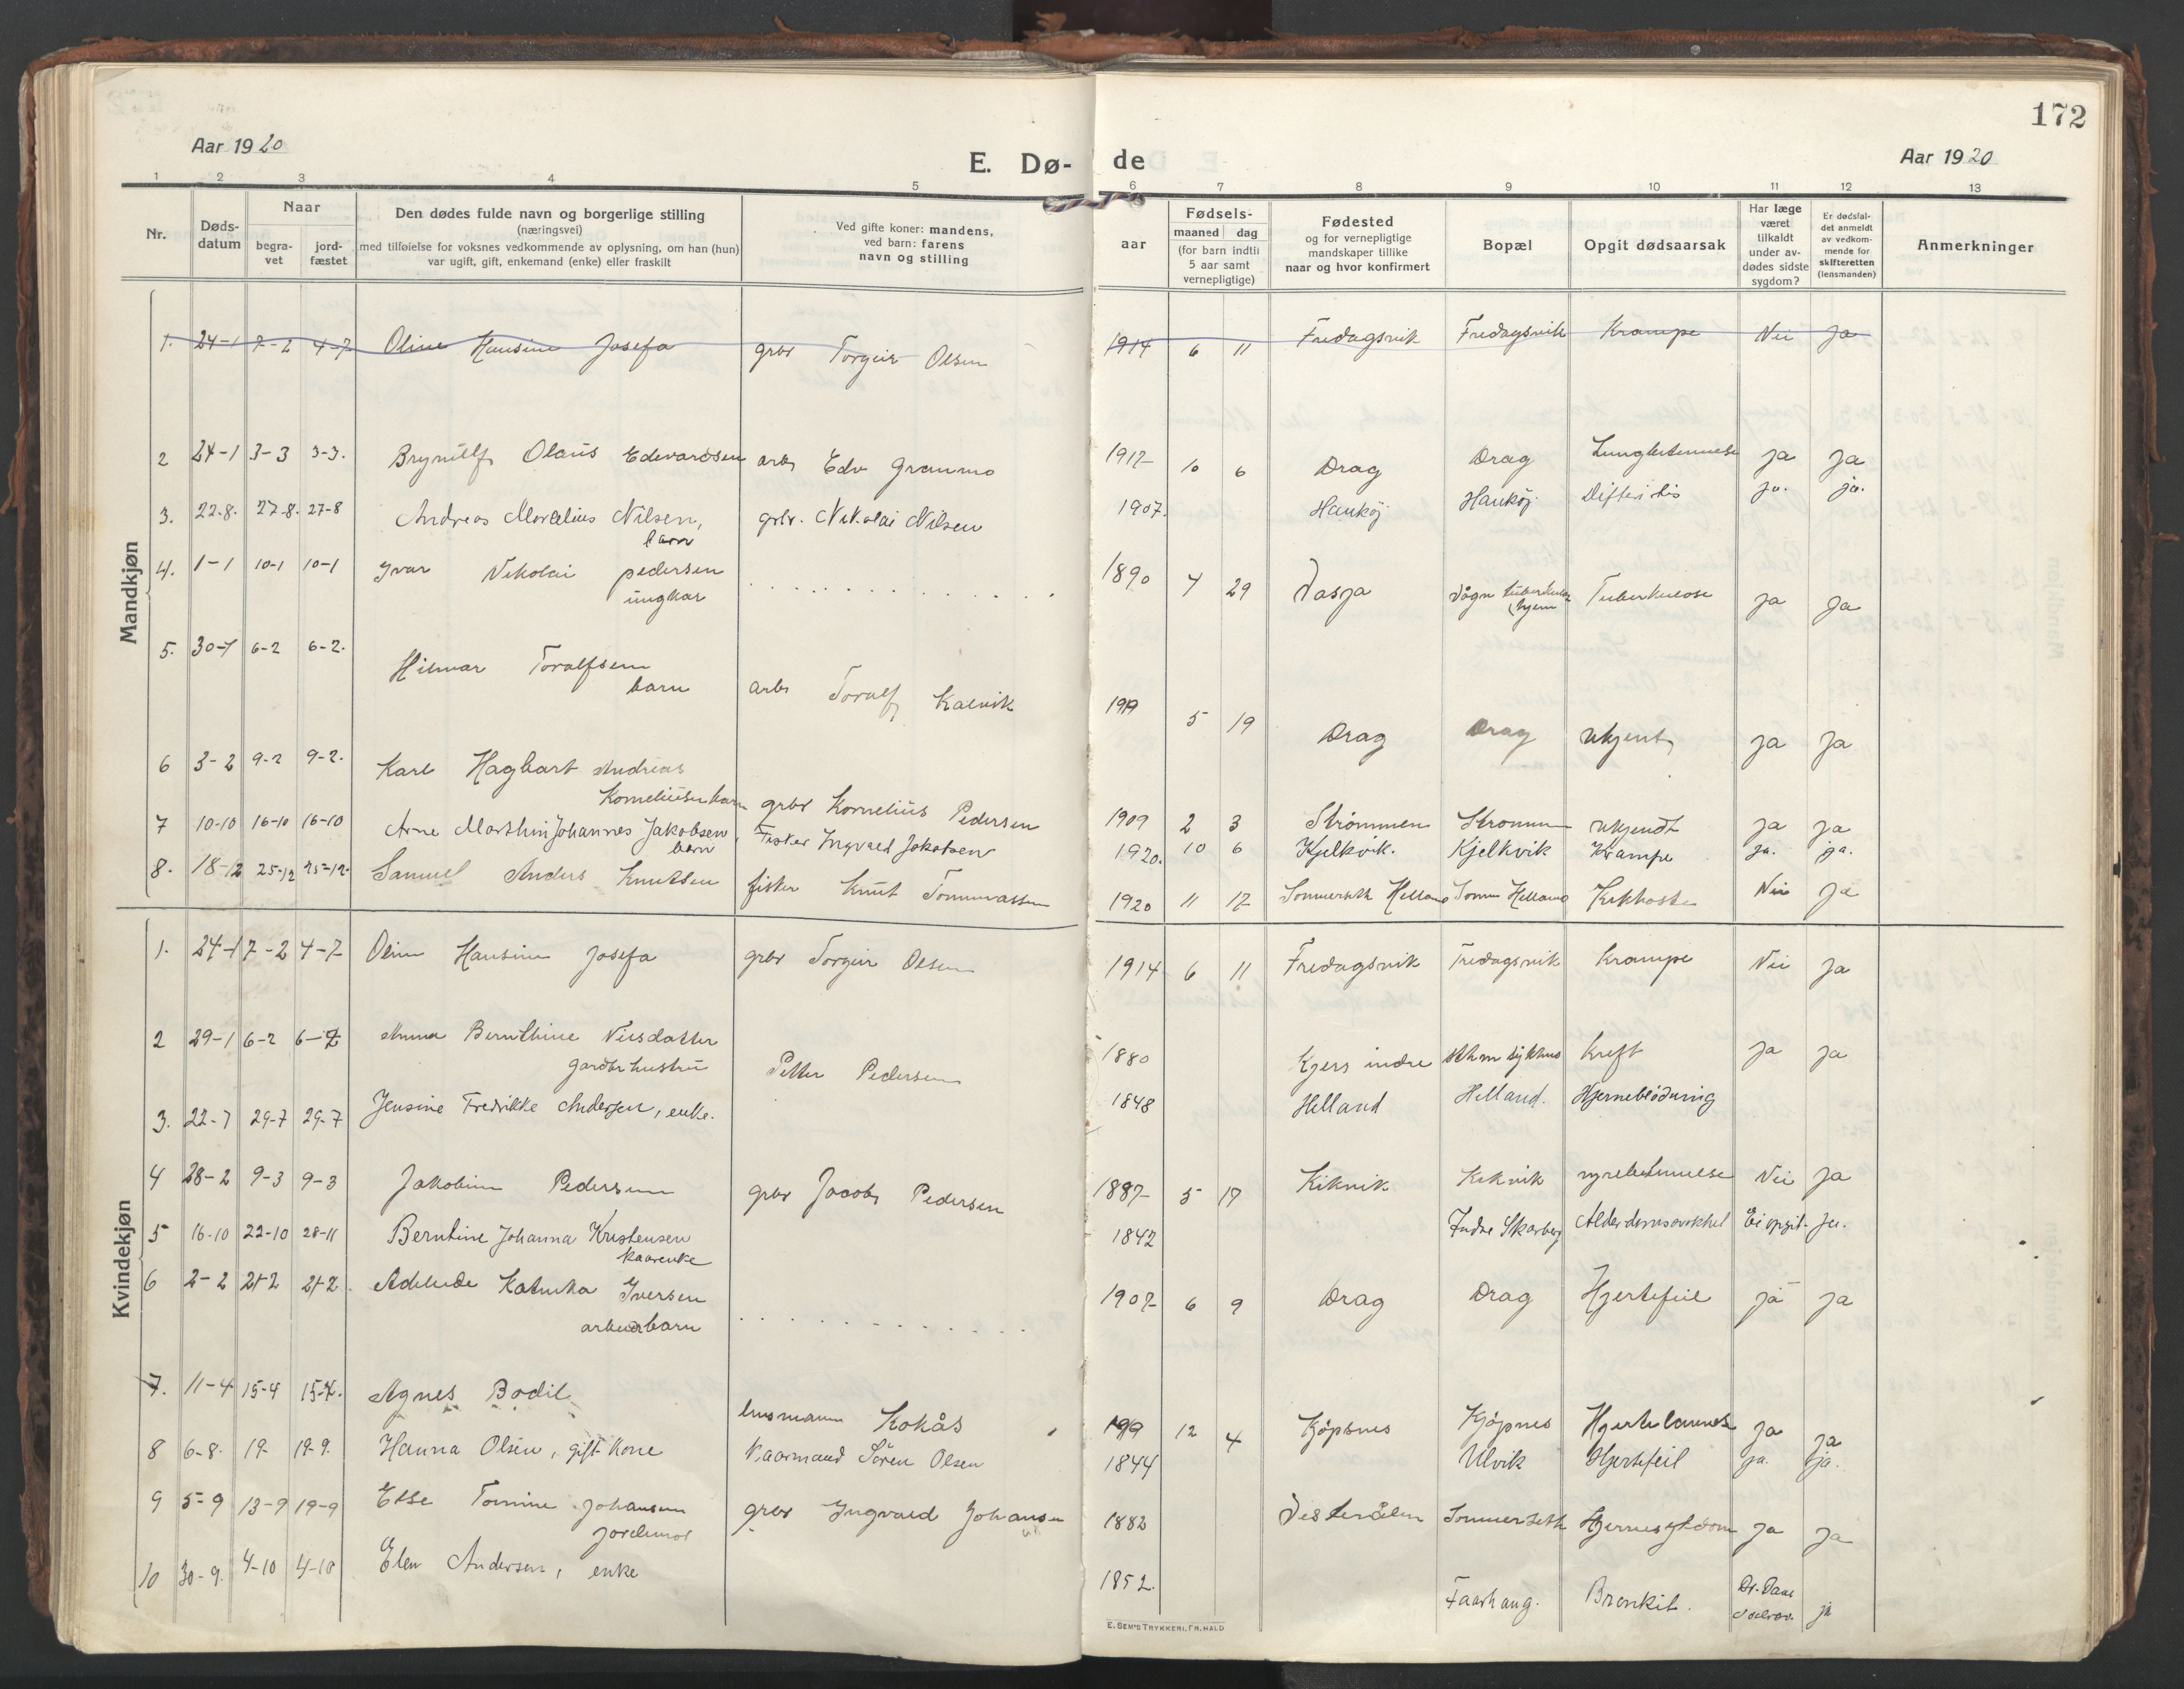 172
Aar 1920
E. Dø-
de
Aar 1920
1 2 3 4 5 6 7 8 9 10 11 12 13
Nr.
Døds-
datum
Naar
begra-
vet
jord-
fæstet
Den dødes fulde navn og borgerlige stilling
(næringsvei)
med tilføielse for voksnes vedkommende av oplysning, om han (hun)
var ugift, gift, enkemand (enke) eller fraskilt
Ved gifte koner: mandens,
ved barn: farens
navn og stilling
aar
Fødsels-
maaned dag
(for barn indtil
5 aar samt
vernepligtige)
Fødested
og for vernepligtige
mandskaper tillike
naar og hvor konfirmert
Bopæl
Opgit dødsaarsak
Har læge
været
tilkaldt
under av-
dødes sidste
sygdom?
Er dødsfal-
det anmeldt
av vedkom-
mende for
skifteretten
(lensmanden)
Anmerkninger
Mandkjøn
1. 24-1 7-2 4-7 Oline Hansine Josefa grbr Torgeir Olsen 1914 6 11 Fredagsvik Fredagsvik Krampe Nei Ja
2 24-1 3-3 3-3. Brynulf Olaus Edvardsen arb Edv Granmo 1917 10 6 Drag Drag Lungbetennelse Ja Ja
3. 22-8. 27-8. 27-8 Andreas Marelius Nilsen, grbr. Nikolai Nilsen 1907. Haukøj Haukøj. Difteritis ja. ja.
barn
4. 1-1 10-1 10-1 Ivar Nikolai pedersen 1890 4 29 Vasja Vågn tuberkulose Tuberkulose ja Ja
ungkar
hjem
5. 30-1 6-2 6-2. Hilmar Toralfsen
barn arb Toralf Kalvik 1919 5 19 Drag Drag ukjent Ja Ja
6 3-2 9-2 9-2. Karl Hagbart Andreas
Korneliusen barn grbr Kornelius Pedersen 1909 2 3 Strømmen Strømmen ukjendt Ja Ja
7 10-10 16-10 16-10 Arne Marthin Johannes Jakobsen, Fisker Ingvald Jakobsen 1920. 10 6 Kjelkvik. Kjelkvik Krampe ja. ja.
barn
8. 18-12 25-12 25-12. Samuel Anders Knutsen fisker Knut Tommassen 1920 11 17 Sommerseth Helland Som Helland Kikhoste Nei Ja
Kvindekjøn
1. 24-1 7-2 4-7 Oline Hansine Josefa grbr Torgeir Olsen 1914 6 11 Fredagsvik Fredagsvik Krampe Nei Ja
2 29-1 6-2 6-2 Anna Bernthine Nilsdatter
gardbr hustru Petter Pedersen 1880 Kjers indre sthm sykhus Kreft Ja Ja
3. 22-7 29-7 29-7 Jensine Fredrikke Andersen, enke. 1848 Helland Helland. Hjerneblødning
4 28-2 9-3 9-3 Jakobine Pedersen grbr Jacob Pedersen 1887 5 17 Kikvik Kikvik nyrebetennelse Nei Ja
5 16-10 22-10 28-11 Berntine Johanna Kristensen 1842 Indre Skarberg Alderdomssvakhet Ei opgit. Ja.
kaarenke
6 2-2 21-2 21-2. Adelude Katinka Iversen 1907 6 9 Drag Drag Hjertefeil ja Ja
arbeiderbarn
7. 11-4 15-4 15-4. Agnes Bodil lensmann Kokås 1919 12 4 Kjøpsnes Kjøpnes Hjertelammelse Ja Ja
8 6-8. 19- 19-9. Hanna Olsen, gift kone Kaarmand Søren Olsen 1844 Ulvik Hjertefeil ja. ja.
9 5-9 13-9 19-9 Else Tomine Johansen grbr Ingvald Johansen 1882 Vesterålen Sommerseth Hjernesykdom Ja Ja
jordemor
10 30-9. 4-10 4-10 Elen Andersen, enke 1852. Faarhaug. Bronkit. Dr. Daae ja
E. SEM'S TRYKKERI, FR. HALD